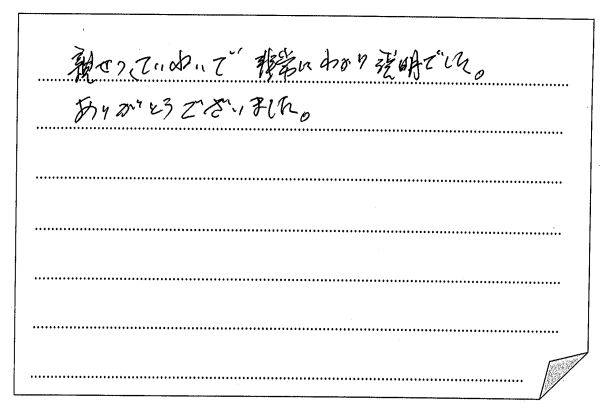 親せつていねいで 非常にわかり説明でした。
ありがとうございました。